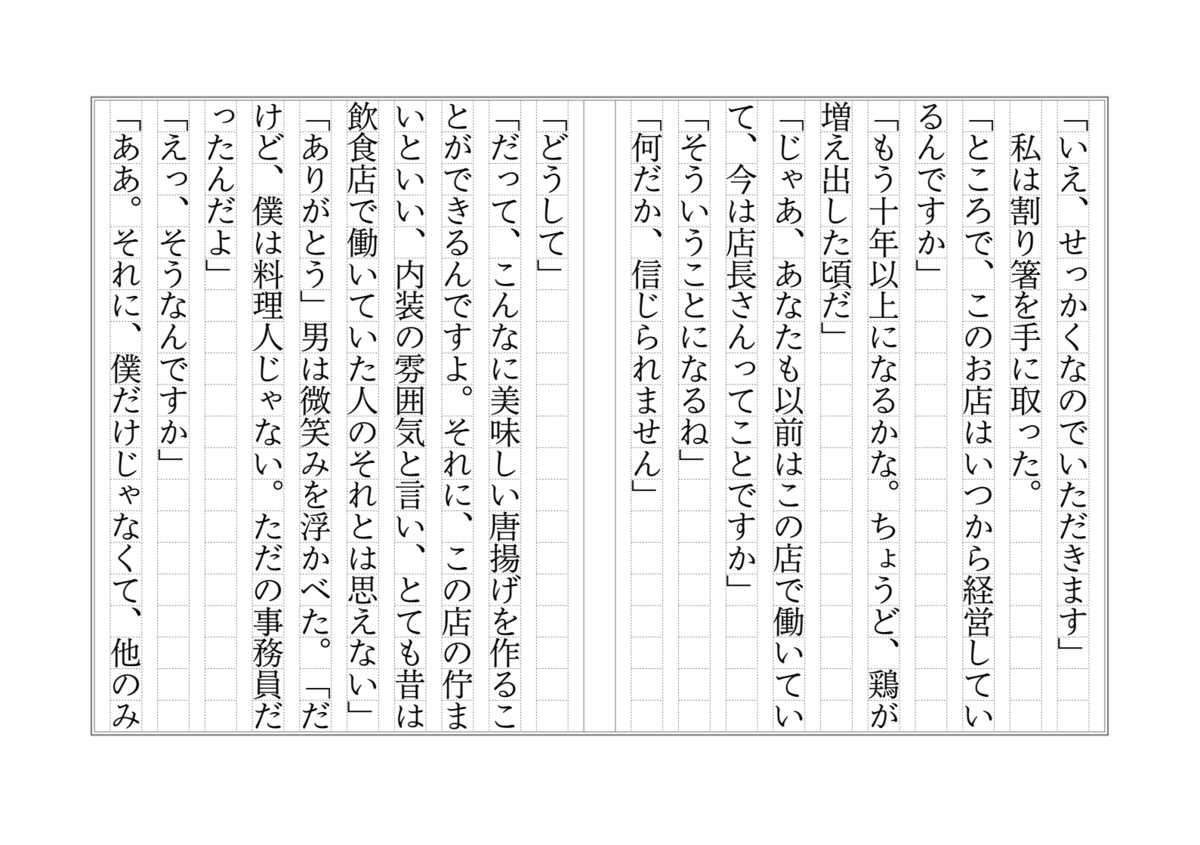 「いえ、せっかくなのでいただきます」
　私は割り箸を手に取った。
「ところで、このお店はいつから経営してい
るんですか」
「もう十年以上になるかな。ちょうど、鶏が
増え出した頃だ」
「じゃあ、あなたも以前はこの店で働いてい
て、今は店長さんってことですか」
「そういうことになるね」
「何だか、信じられません」
「どうして」
「だって、こんなに美味しい唐揚げを作るこ
とができるんですよ。それに、この店の佇ま
いといい、内装の雰囲気と言い、とても昔は
飲食店で働いていた人のそれとは思えない」
「ありがとう」男は微笑みを浮かべた。「だ
けど、僕は料理人じゃない。ただの事務員だ
ったんだよ」
「えっ、そうなんですか」
「ああ。それに、僕だけじゃなくて、他のみ